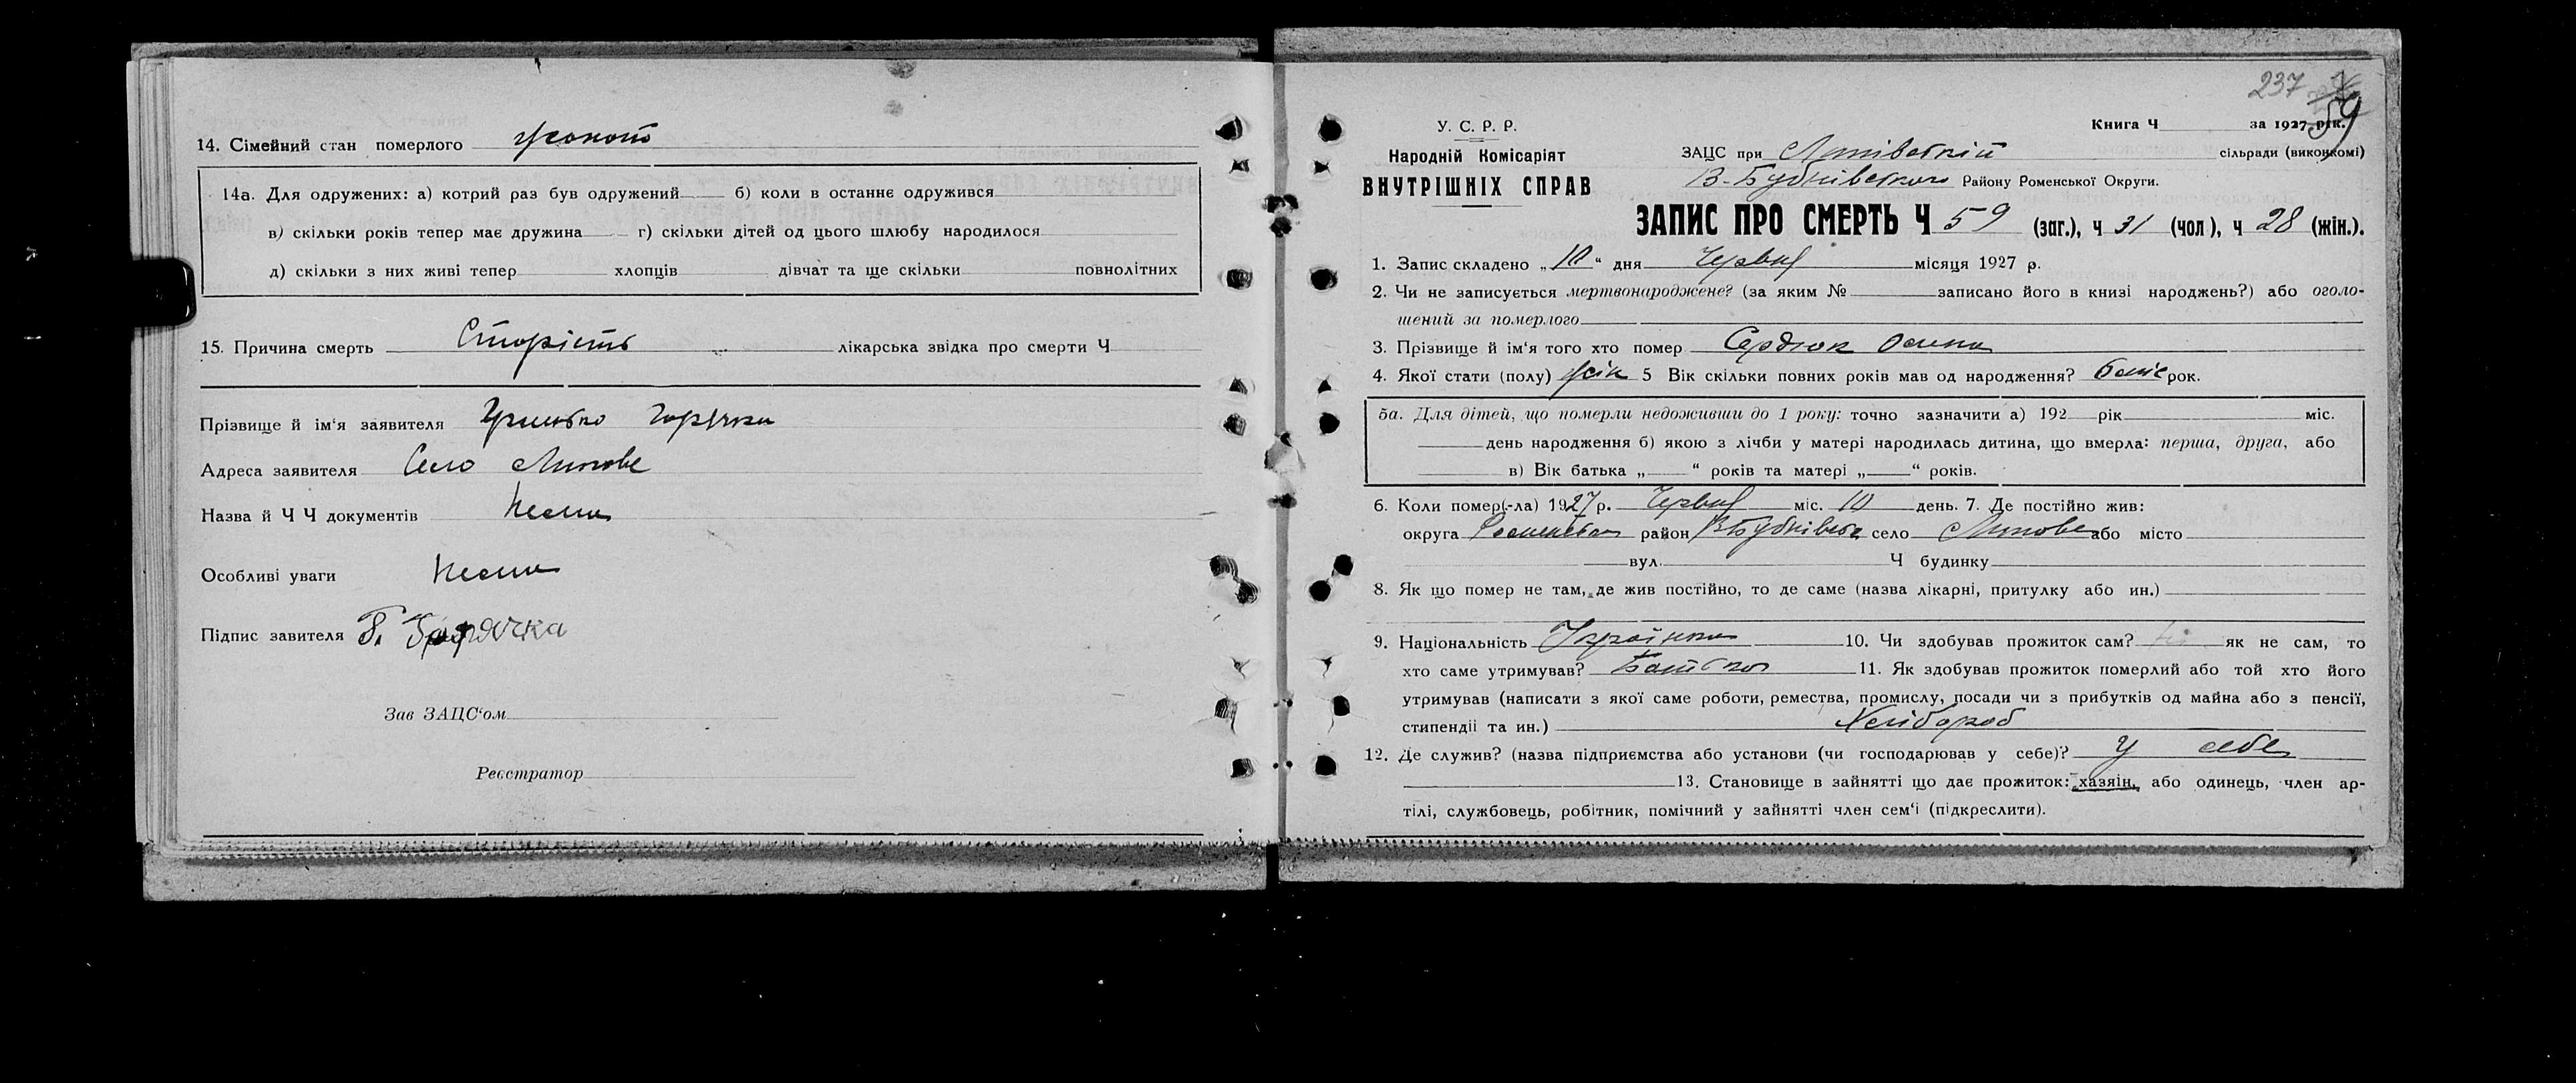 14. Сімейний стан померлого
14а. Для одружених: а) котрий раз був одружений б) коли в останнє одружився
в) скільки років тепер має дружина г) скільки дітей од цього шлюбу народилося
д) скільки з них живі тепер хлопців дівчат та ще скільки повнолітних
15. Причина смерть Старість лікарська звідка про смерти Ч
Прізвище й ім'я заявителя Грицько Горячка
Адреса заявителя Село Липове
Назва й Ч Ч документів Нема
Особливі уваги Нема
Підпис завителя Г. Горячка
Зав ЗАЦС'ом
Реєстратор
237 59
У. С. Р. Р.
Народній Комісаріят
ВНУТРІШНІХ СПРАВ
Книга Ч за 1927 рік.
ЗАЦС при Липівській сільради (виконкомі)
В-Бубнівського Району Роменської Округи.
ЗАПИС ПРО СМЕРТЬ Ч 59 (заг.), ч 31 (чол), ч 28 (жін.).
1. Запис складено „10" дня Червня місяця 1927 р.
2. Чи не записується мертвонароджене? (за яким № записано його в книзі народжень?) або оголо-
шений за померлого
3. Прізвище й ім'я того хто помер Сердюк
4. Якої стати (полу) 5 Вік скільки повних років мав од народження? рок.
5а. Для дітей, що померли недоживши до 1 року: точно зазначити а) 192 рік міс.
день народження б) якою з лічби у матері народилась дитина, що вмерла: перша, друга, або
в) Вік батька „ " років та матері „ " років.
6. Коли помер(-ла) 1927 р. Червня міс. 10 день. 7. Де постійно жив:
округа Роменська район В Бубнівськ село Липове або місто
вул. Ч будинку
8. Як що помер не там, де жив постійно, то де саме (назва лікарні, притулку або ин.)
9. Національність Українка 10. Чи здобував прожиток сам? як не сам, то
хто саме утримував? 11. Як здобував прожиток померлий або той хто його
утримував (написати з якої саме роботи, ремества, промислу, посади чи з прибутків од майна або з пенсії,
стипендіі та ин.) Хлібороб
12. Де служив? (назва підприємства або установи (чи господарював у себе)? У себе
13. Становище в зайнятті що дає прожиток: хазяін, або одинець, член ар-
тілі, службовець, робітник, помічний у зайнятті член сем'і (підкреслити).